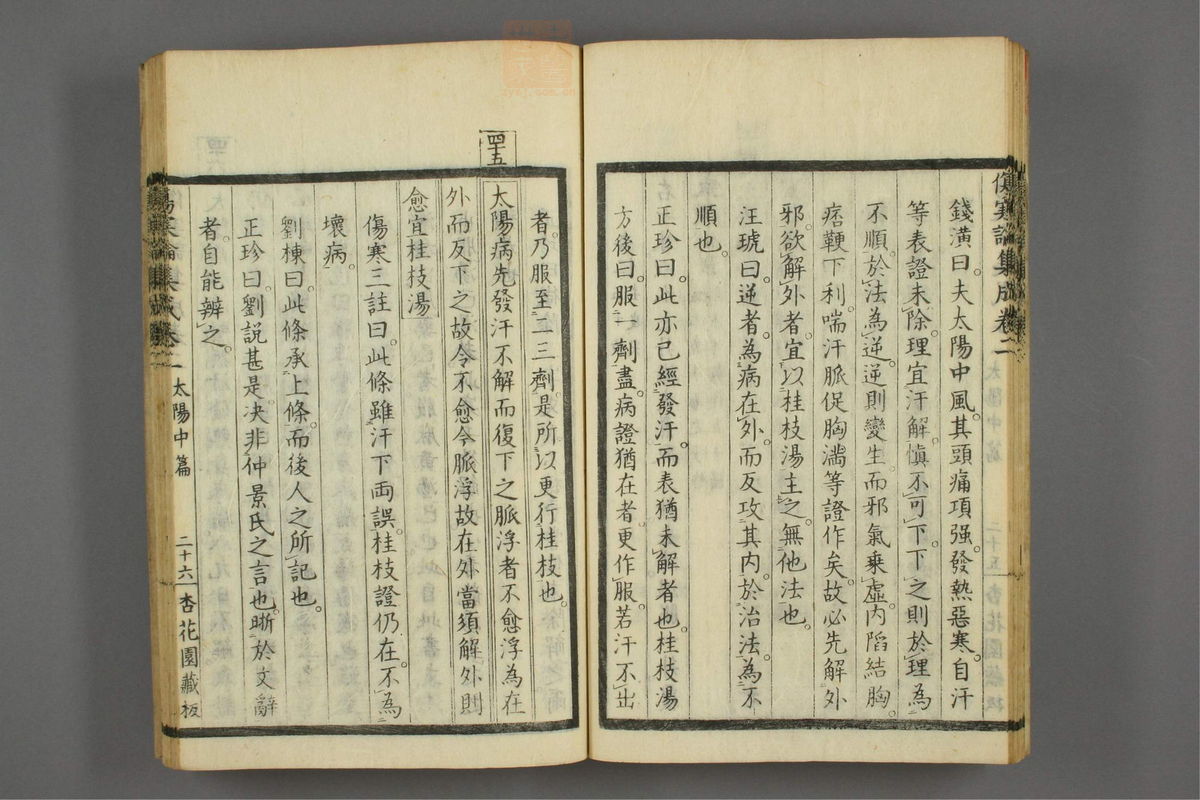 傷寒論集成卷二
錢潢曰。夫太陽中風。其頭痛項强。發熱惡寒。自汗
等表證未除。理宜汗解。愼不可下。下之則於理為
不順。於法為逆。逆則變生。而邪氣乗虛。内䧟結胸。
痞鞕下利。喘汗脈促胸滿等證作矣。故必先解外
邪。欲解外者。宜以桂枝湯主之。無他法也。
汪琥曰。逆者。為病在外。而反攻其内。於治法為不
順也。
正珍曰。此亦已經發汗。而表猶未解者也。桂枝湯
方後曰。服一劑盡。病證猶在者。更作服。若汗不出
者。乃服至二三劑。是所以更行桂枝也。
四十五
太陽病先發汗不解而復下之脈浮者不愈浮為在
外而反下之故令不愈今脈浮故在外當須解外則
愈宜桂枝湯
傷寒三註曰。此條雖汗下両誤。桂枝證仍在。不為
壞病。
劉棟曰。此條承上條。而後人之所記也。
正珍曰。劉説甚是。决非仲景氏之言也。晰於文辭
者。自能辨之。
傷寒論集成卷二 太陽中篇 二十六 杏花園藏板